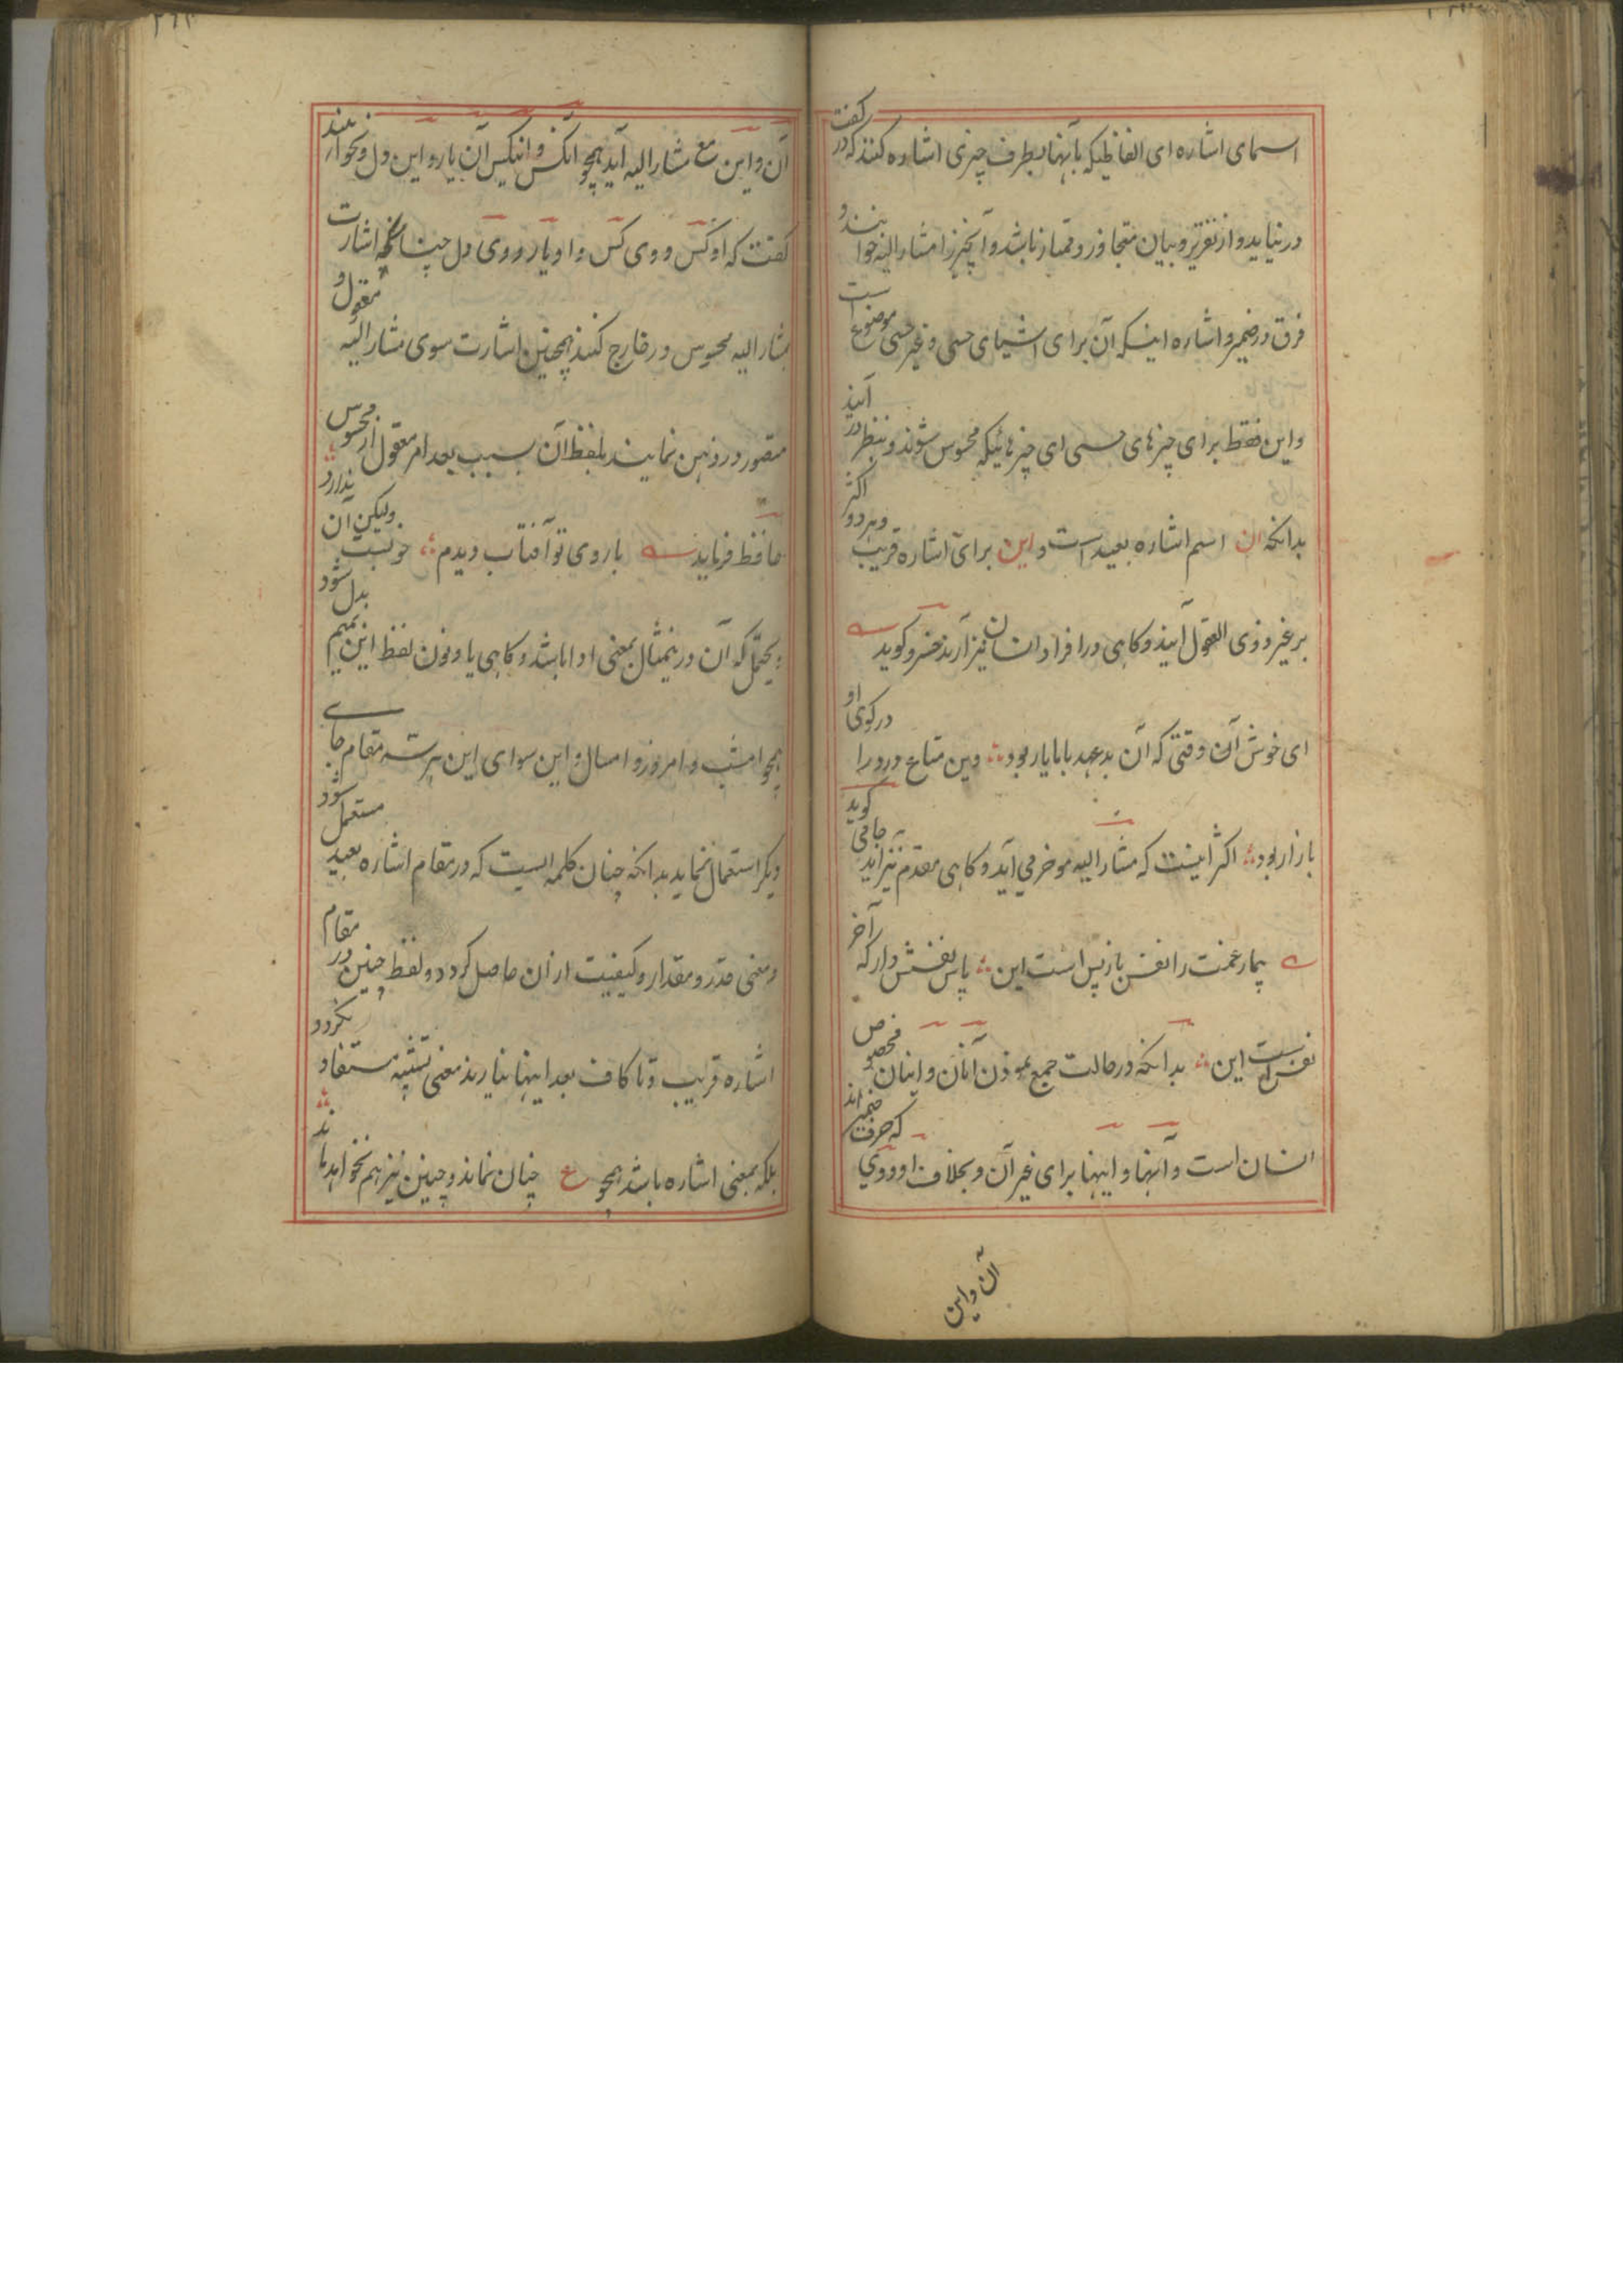 اسمای اشاره ای الفاظیکه بآنها بطرف چیزی اشاره کنند که در گفت
در نیاید و از تقریر و بیان متجاوز و ممتاز باشد و آنچیز را مشار الیه خوانند و
فرق در ضمیر و اشاره اینکه آن برای اشیای حسی و غیر حسی موضوع است
و این فقط برای چیزهای حسی ای چیزهائیکه محسوس شوند و بنظر در آیند
بدانکه آن اسم اشاره بعید است و این برای اشاره قریب و هر دو اکثر
بر غیر ذوی العقول آیند و کاهی در افراد انسان نیز آرند خسرو کوید
ای خوش آن وقتی که آن بدعهد بابا یار بود وین متاع درد را در کوی او
بازار بود اکثر اینست که مشار الیه موخر می آید و کاهی مقدم نیز آید جامی کوید
بیمار غمت را نفس بازپس است این پاس نفسش دار که آخر
نفس است این بدانکه در حالت جمع نمودن آنان و اینان مخصوص
انسان است و آنها و اینها برای غیر آن و بخلاف او و وی که حرف ضمیر اند
آن و این
آن و این مع مشار الیه آید همچو آنکس و اینکس آن یار و این دل و نخواهند
گفت که او کس و وی کس و او یار و وی دل چنانکه اشارت
بمشار الیه محسوس در خارج کنند همچنین اشارت سوی مشار الیه معقول و
متصور در ذهن نمایند بلفظ آن بسبب بعد امر معقول از محسوس
حافظ فرماید با روی تو آفتاب دیدم خوبست ولیکن آن ندارد
و یحتمل که آن درینمثال بمعنی ادا باشد و کاهی یا و نون لفظ این بمیم بدل شود
همچو امشب و امروز و امسال و این سوای این هر سه مقام جای
دیگر استعمال نماید بدانکه چنان کلمه ایست که در مقام اشاره بعید مستعمل شود
و معنی قدر و مقدار و کیفیت از آن حاصل کردد و لفظ چنین در مقام
اشاره قریب و تا کاف بعد اینها نیارند معنی تشبیه مستفاد نکردد
بلکه بمعنی اشاره باشد همچو ع چنان نماند و چنین نیز هم نخواهد ماند